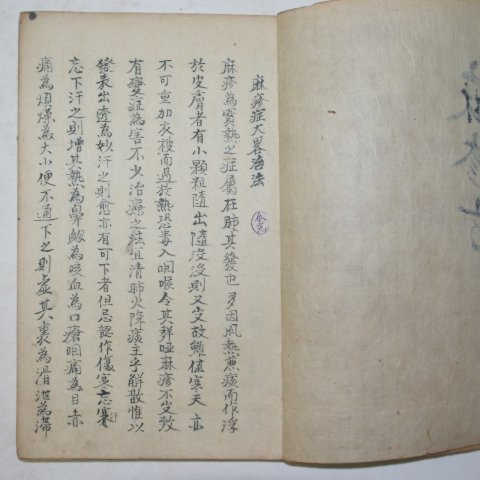 麻疹症大畧治法
麻疹為實熱之症屬在肺其發也多因風熱兼痰而作浮
於皮膚者有小顆粒隨出隨沒沒則又出故雖值寒天亦
不可重加衣被而過於熱恐毒入咽喉令其聲啞麻疹不出致
有變症為害不少治療之法宜清肺火降痰主乎解散惟以
發表出透為妙汗之則愈亦有可下者但忌認作傷寒
忘下汗之則增其熱為鼻衄為咳血為口瘡咽痛為目赤
痛為煩燥為大小便不通下之則虛其裏為滑泄為滯